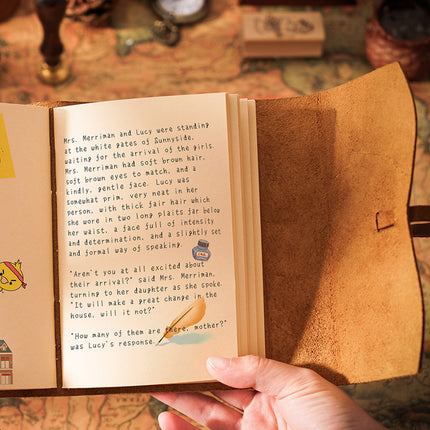 Mrs. Merriman and Lucy were standing
at the white gates of Sunnyside,
waiting for the arrival of the girls.
Mrs. Merriman had soft brown hair,
soft brown eyes to match, and a
kindly, gentle face. Lucy was
somewhat prim, very neat in her
person, with thick fair hair which
she wore in two long plaits far below
her waist, a face full of intensity
and determination, and a slightly set
and formal way of speaking.
"Aren't you at all excited about
their arrival?" said Mrs. Merriman,
turning to her daughter as she spoke.
"It will make a great change in the
house, will it not?"
"How many of them are there, mother?"
was Lucy's response.